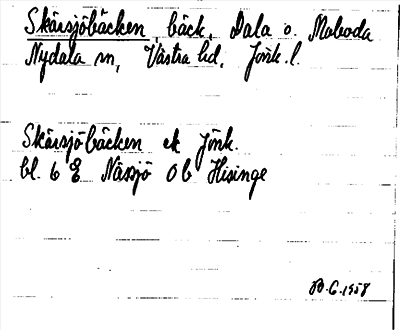 Skärsjöbäcken, bäck, Dala o. Moboda
Nydala sn, Västra hd, Jönk. l.
Skärsjöbäcken ek Jönk.
bl. 6 Ö Nässjö Ob Hisinge
1958